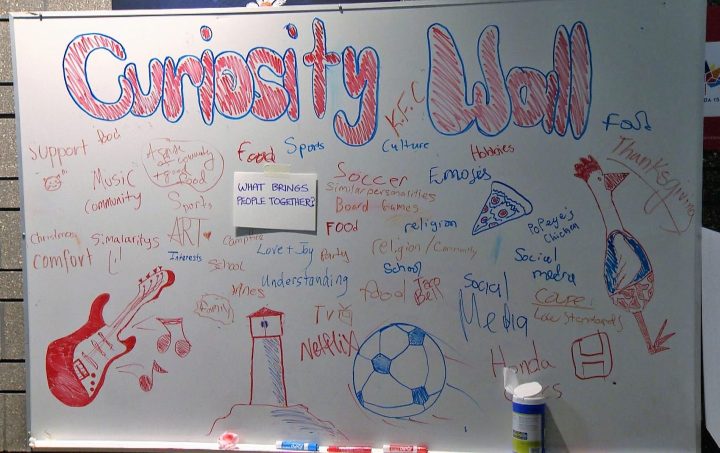 Curiosity Wall
K.F.C
Food
Support
Bad
A shared
Community
Good
Food
Food
Sports
Culture
Hobbies
Thanksgiving
Music
Community
Sports
WHAT BRINGS
PEOPLE TOGETHER?
Soccer
Similar personalities
Board Games
Emojes
ART
Food
religion
Popeye's
Chicken
Comfort
Similaritys
Interests
Campfire
Love + Joy
Party
religion/Community
School
Understanding
School
Social
media
Memes
Family
food
Taco
Bell
Social
Media
Cause:
Low Standards
TV
Netflix
Honda